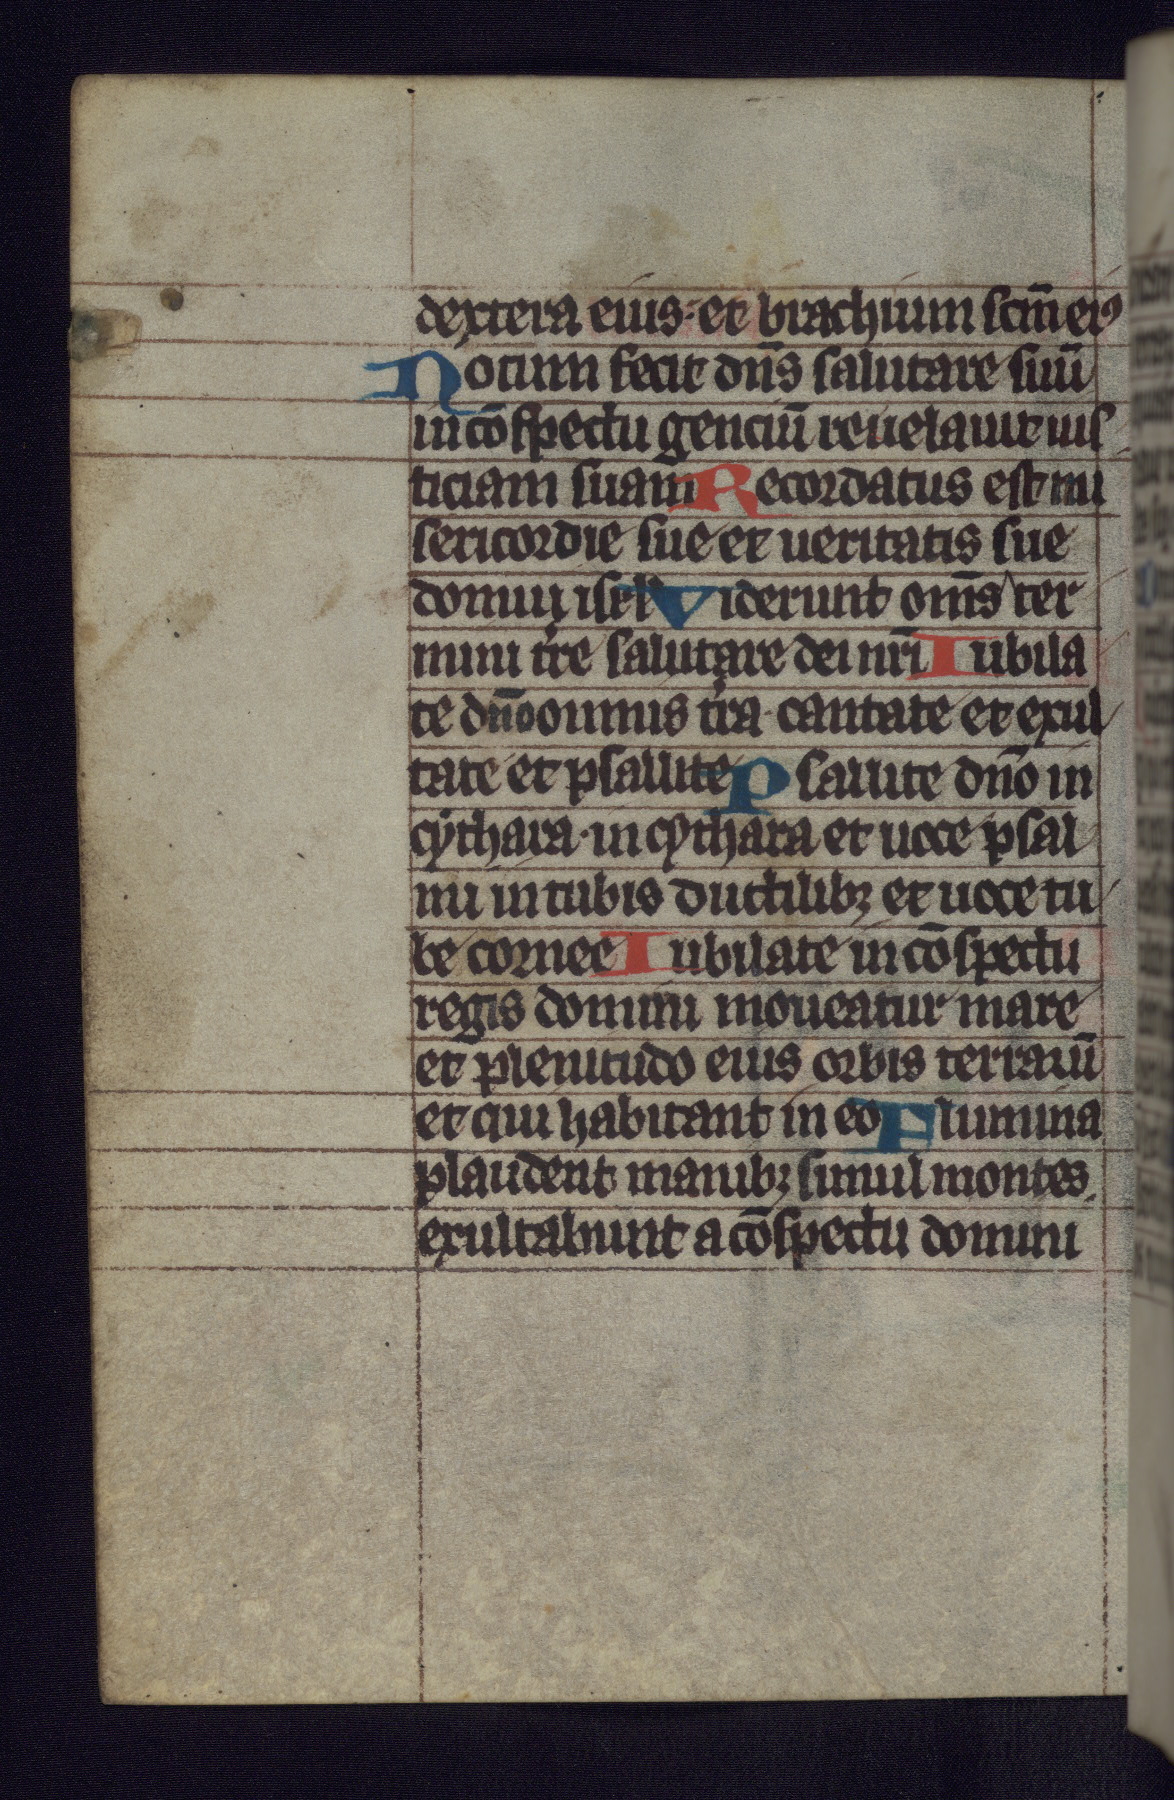 dextera eius· et brachium scm̄ eiꝰ
Notum fecit dn̄s salutare suū
in cōspectu genciū reuelauit ius
ticiam suam Recordatus est mi
sericordie sue et ueritatis sue
domui isrl̄ Viderunt om̄s ter
mini tr̄e salutare dei nr̄i Iubila
te dn̄o omnis tr̄a· cantate et exul
tate et psallite Psallite dn̄o in
cythara· in cythara et uoce psal
mi in tubis ductilibꝫ et uoce tu
be cornee Iubilate in cōspectu
regis domini moueatur mare
et plenitudo eius orbis terrarū
et qui habitant in eo Flumina
plaudent manibꝫ simul montes
exultabunt a cōspectu domini